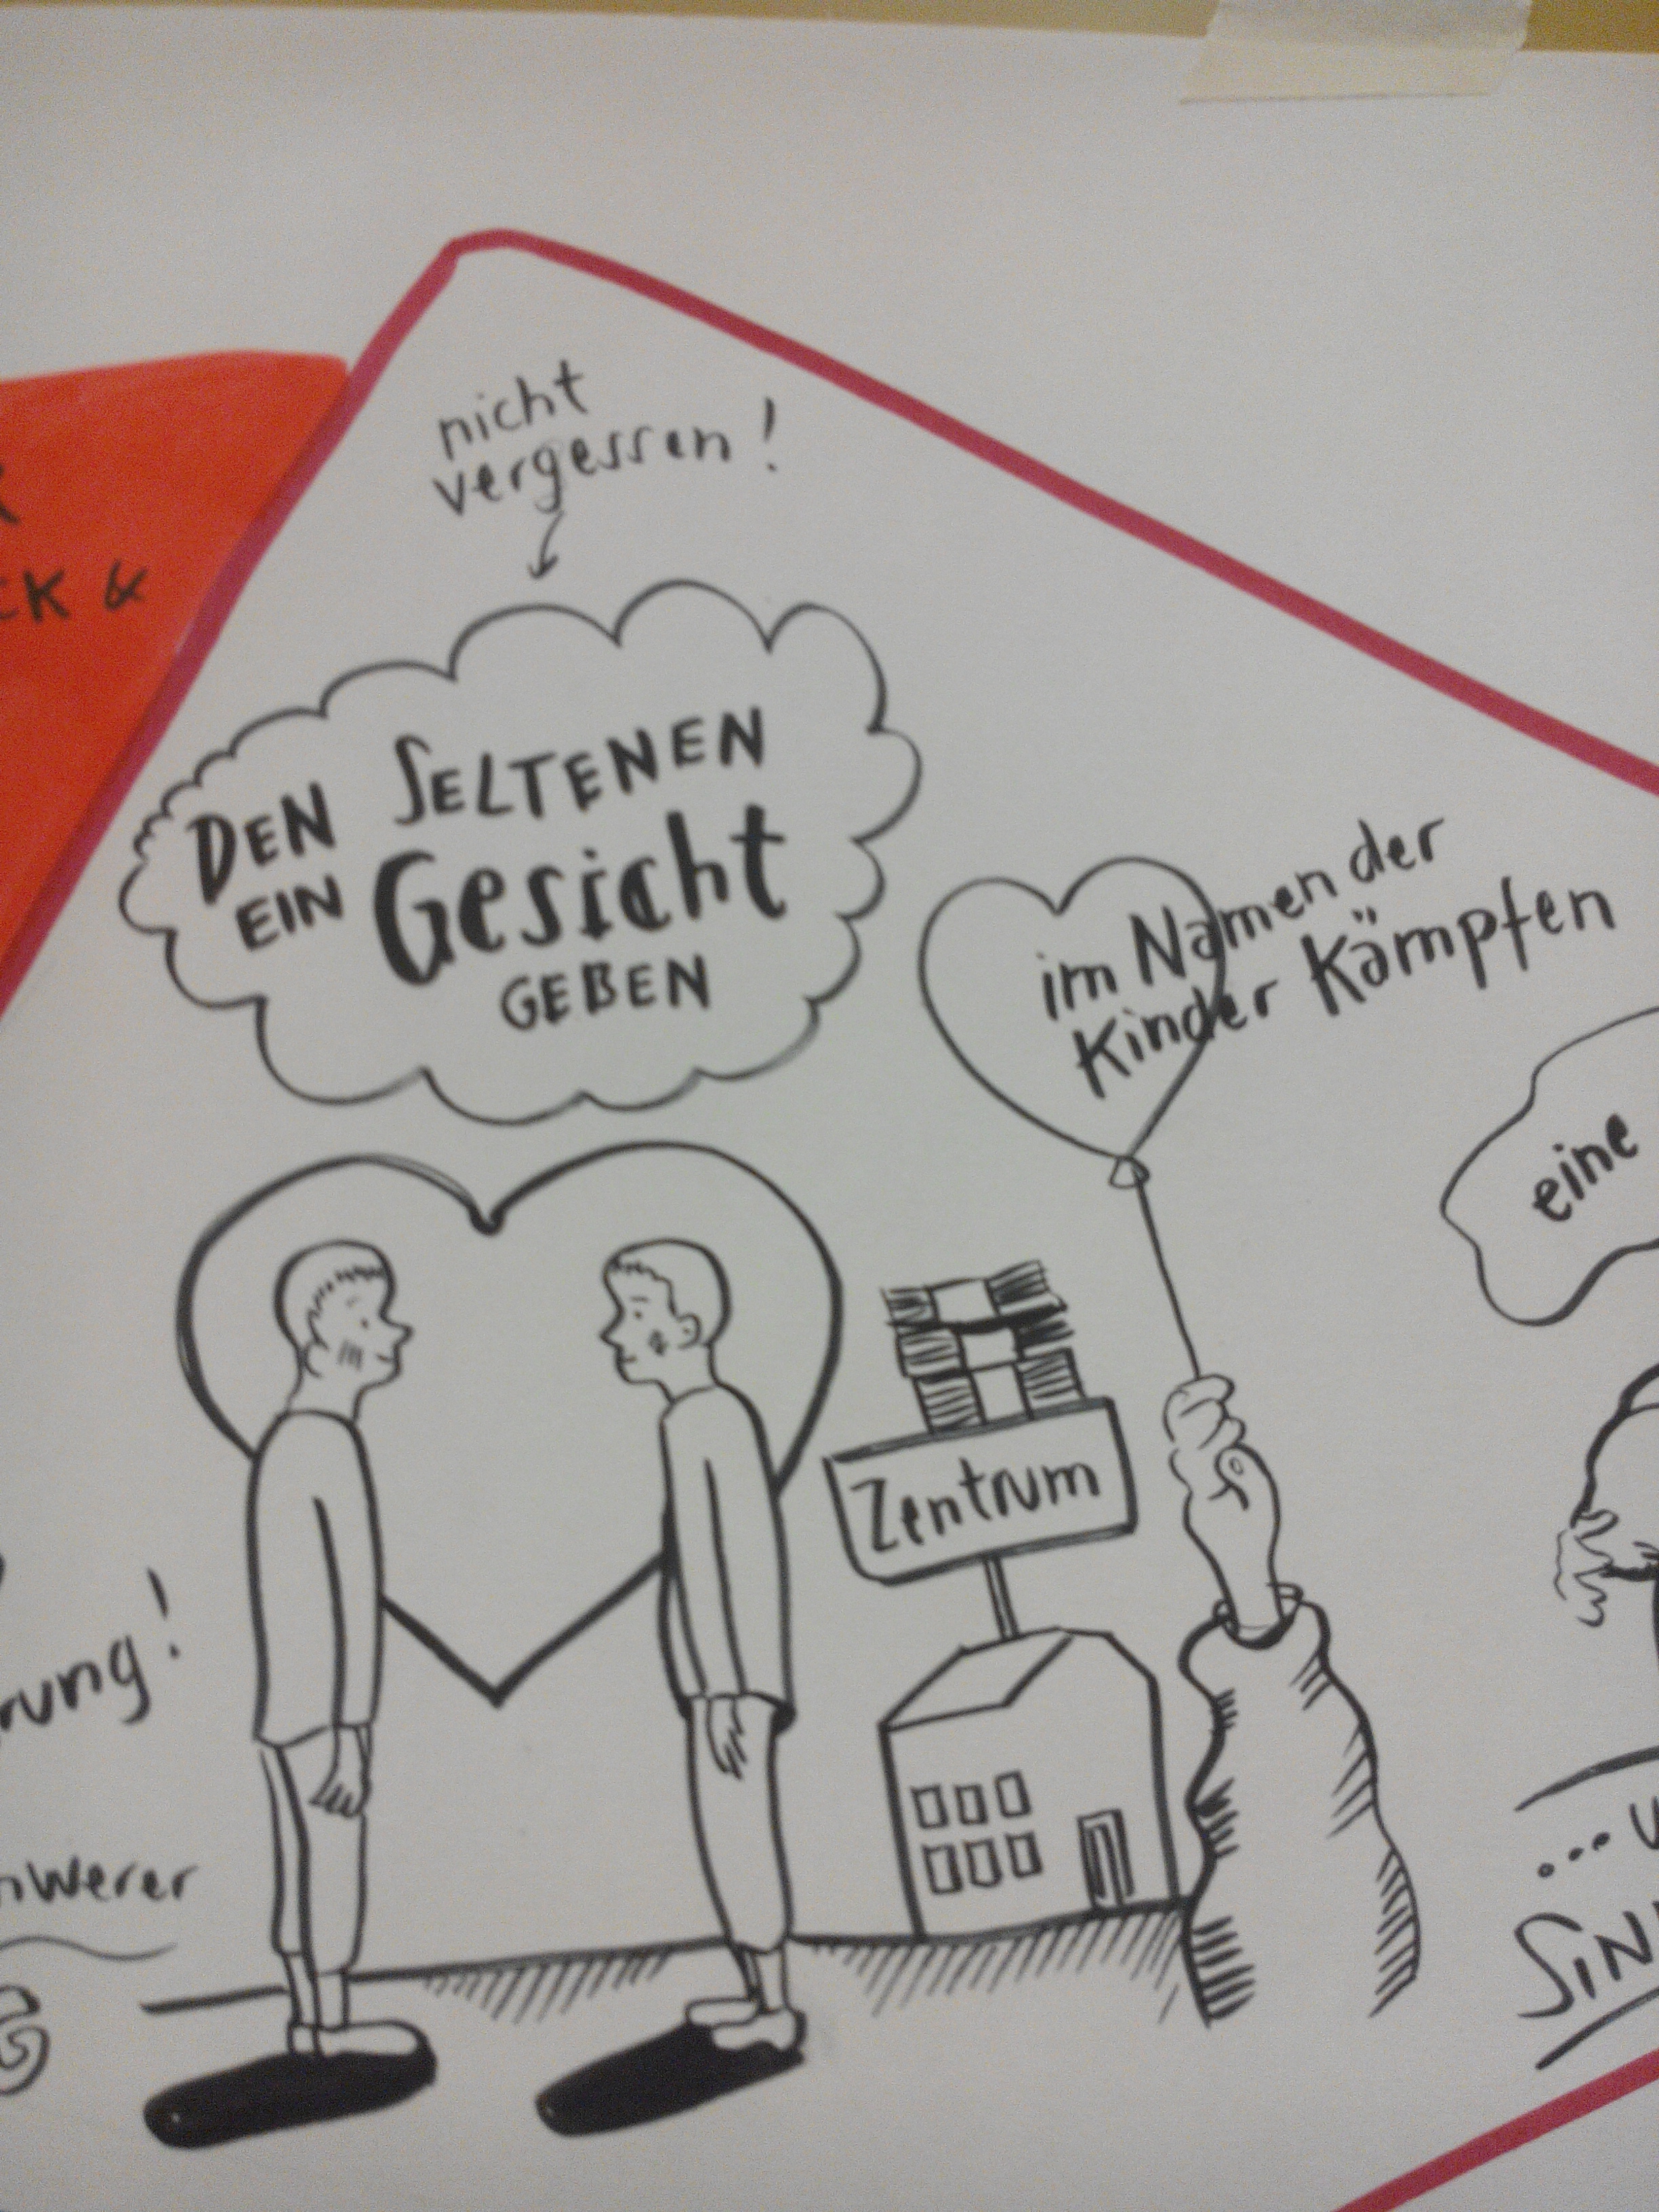 CK &
nicht
vergessen!
DEN SELTENEN
EIN Gesicht
GEBEN
im Namen der
Kinder Kämpfen
eine
Zentrum
rung!
nwerer
... u
SIN